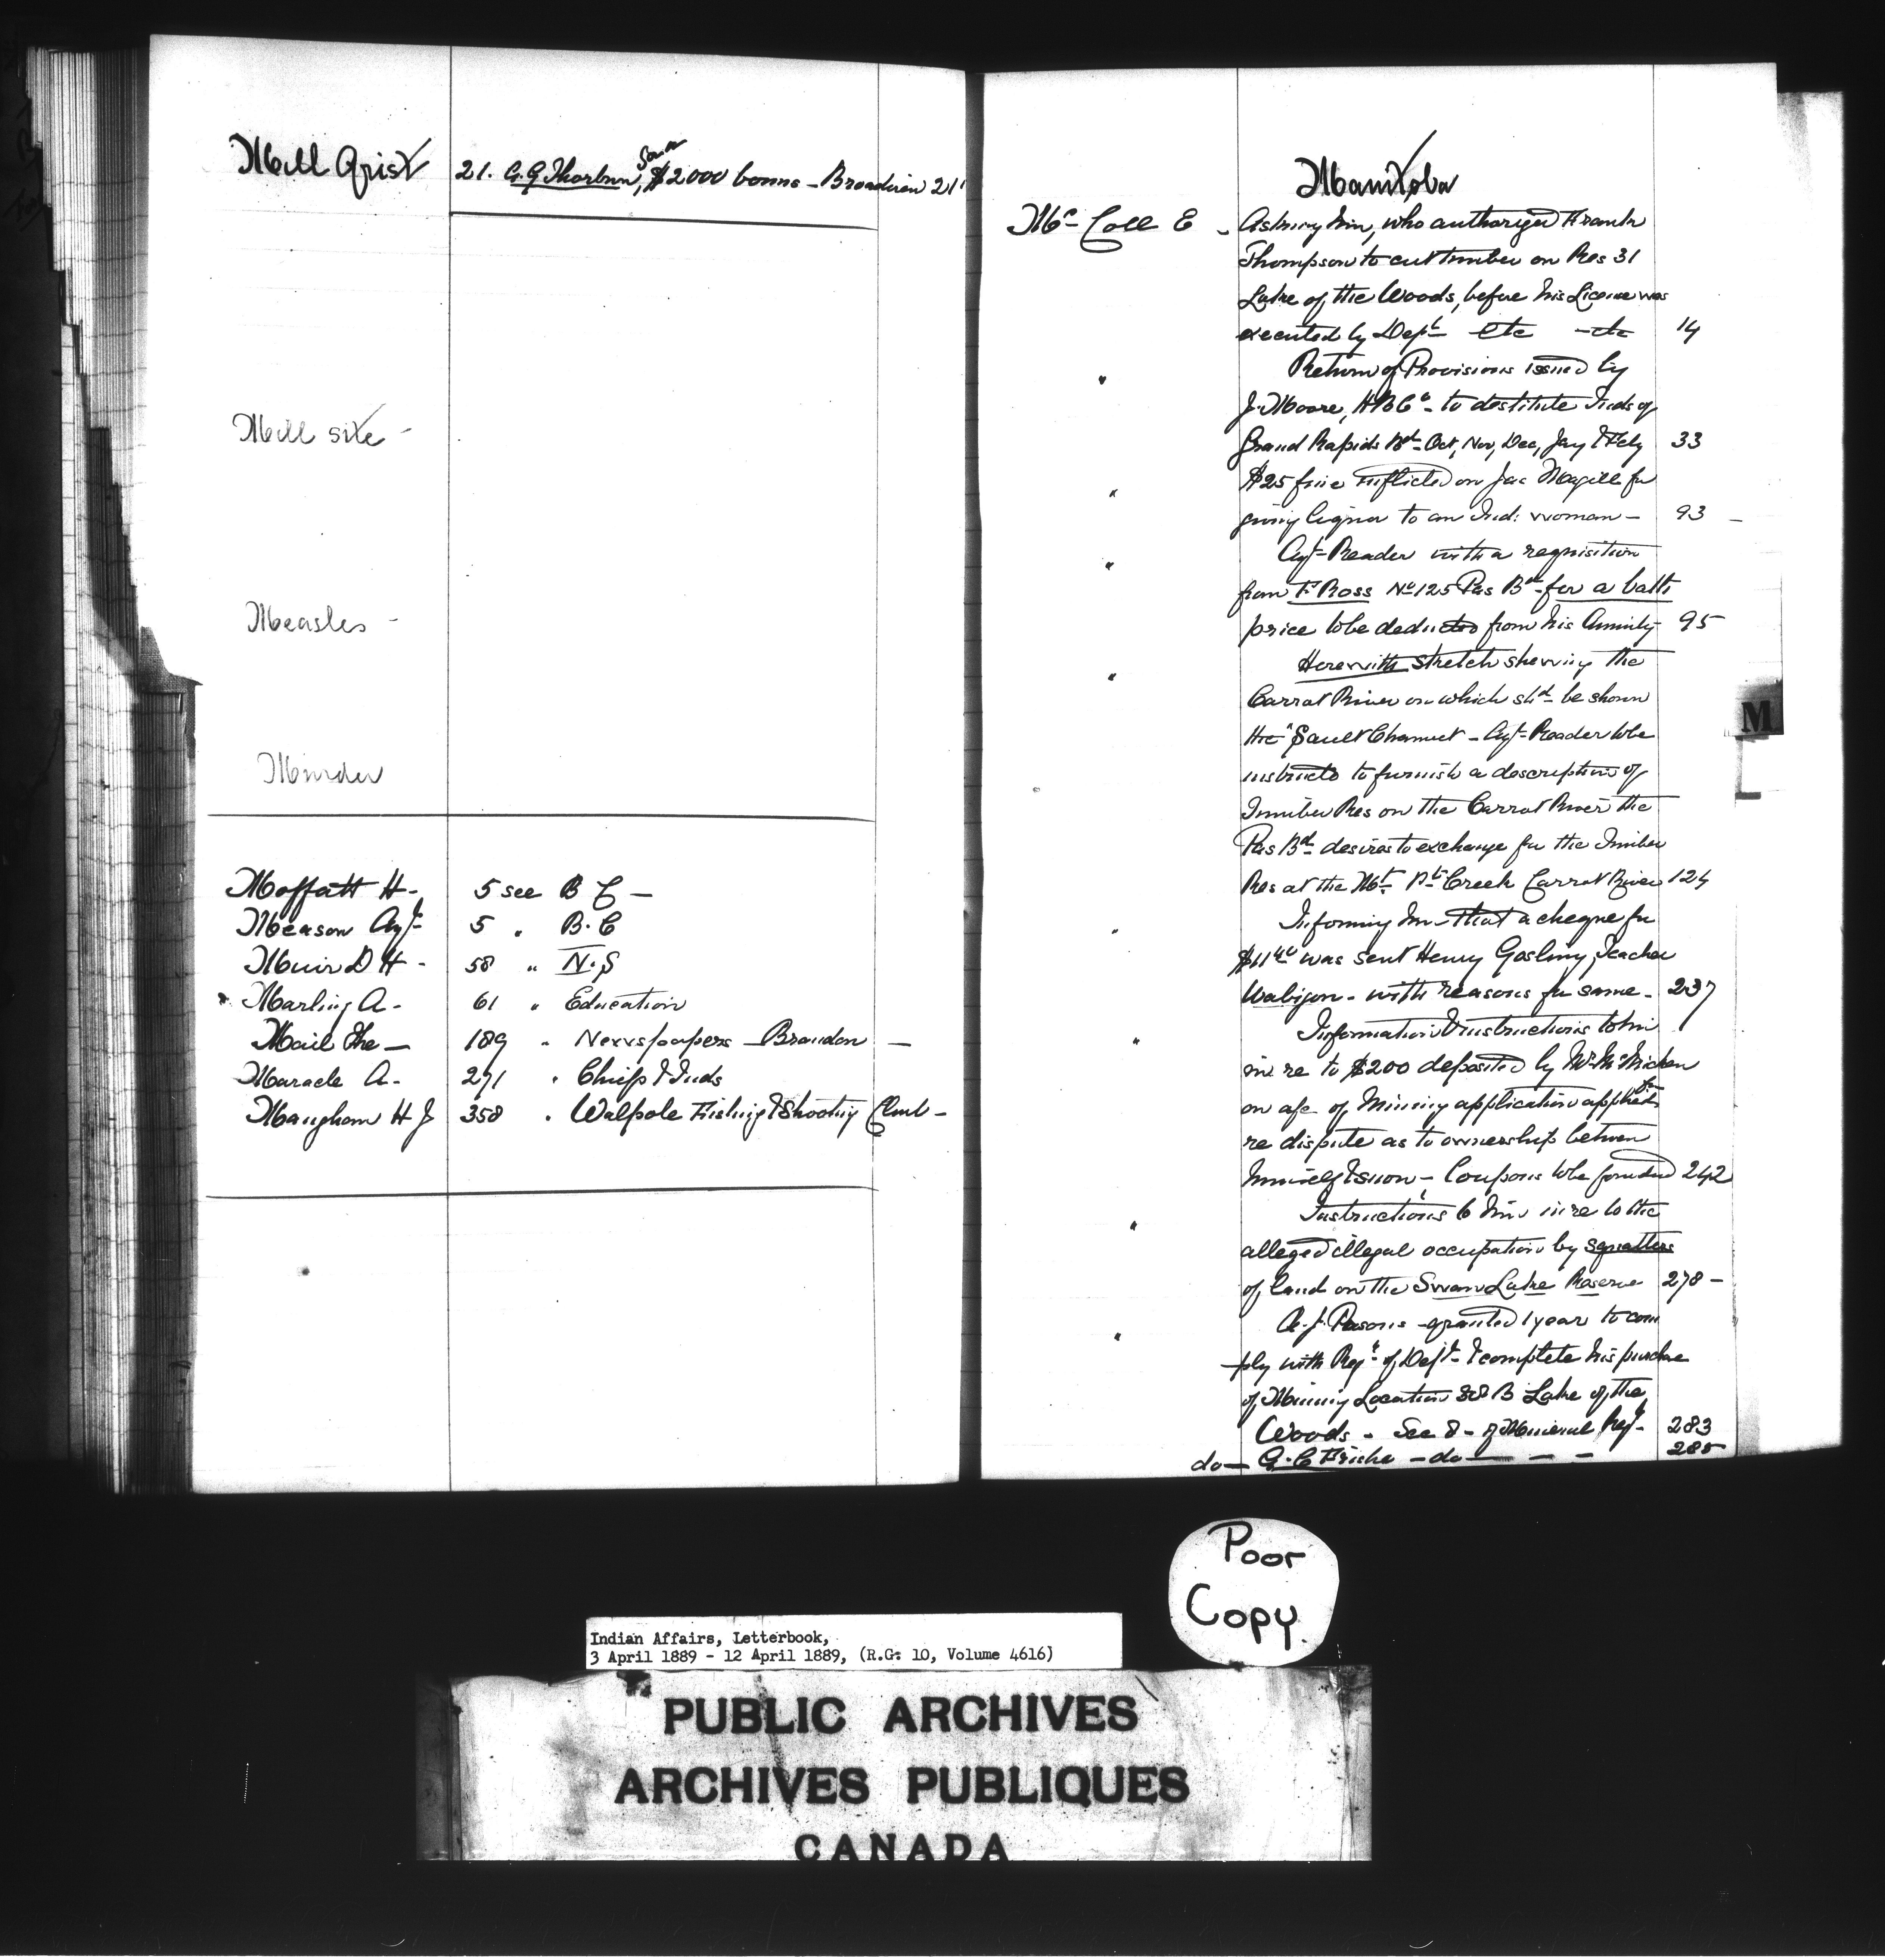 Mill Grist
21. G. G Thorburn, Sou a $2000 bonus - Broadview 21
Mill site -
Measles -
Murder
Moffatt H - 5 see B C -
Meason Agt 5 " B. C
Muir D H - 58 " N. S
Marling A - 61 " Education
Mail The - 189 " Newspapers - Brandon -
Maracle A - 271 " Chiefs & Inds
Maugham H J 358 " Walpole Fishing & Shooting Club -
Manitoba
Mc Coll E - Asking him, who authorized Frank
Thompson to cut timber on Res 31
Lake of the Woods, before his License was
executed by Dept etc - etc 14
" Return of Provisions issued by
J. Moore, HBCo - to destitute Inds of
Grand Rapids Bd - Oct, Nov, Dec, Jay & Feby 33
" $25 fine inflicted on Jas Magill for
giving liquor to an Ind: woman - 93 -
" Agt Reader with a requisition
from F Ross No 125 Pas Bd - for a
price to be deducted from his Annuity 95
" Herewith sketch shewing the
Carrot River on which shd be shown
the "Sault Channel - Agt Reader to be
instructed to furnish a description of
Timber Res on the Carrot River the
Pas Bd desires to exchange for the Timber
Res at the Creek Carrot River 124
" Informing him that a cheque for
was sent Henry Gosling, Teacher
Wabigon - with reasons for same - 237
" Information & instructions to him
in re to $200 deposited by Mr McMicken
on a/c of Mining application applied for
re dispute as to ownership between
himself & son - Coupons to be forwarded 242
" Instructions to him in re to the
alleged illegal occupation by squatters
of land on the Swan Lake Reserve 278 -
" A. J. Parsons - granted 1 year to com
ply with Regs of Dept & complete his purchase
of Mining Location 38 B Lake of the
Woods - See 8 - of Mineral Regs 283
do - G. C Frisha - do - - - 285
M
Poor
Copy.
Indian Affairs, Letterbook,
3 April 1889 - 12 April 1889, (R.G: 10, Volume 4616)
PUBLIC ARCHIVES
ARCHIVES PUBLIQUES
CANADA